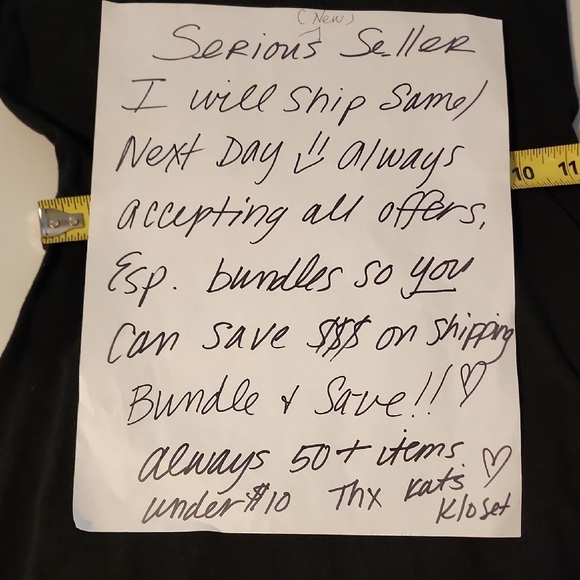 (New)
Serious Seller
I will ship same/
Next Day !! always
accepting all offers,
Esp. bundles so you
can save $$$ on shipping
Bundle & Save!! ♡
always 50+ items ♡
under $10 Thx Kat's
Kloset
10 11